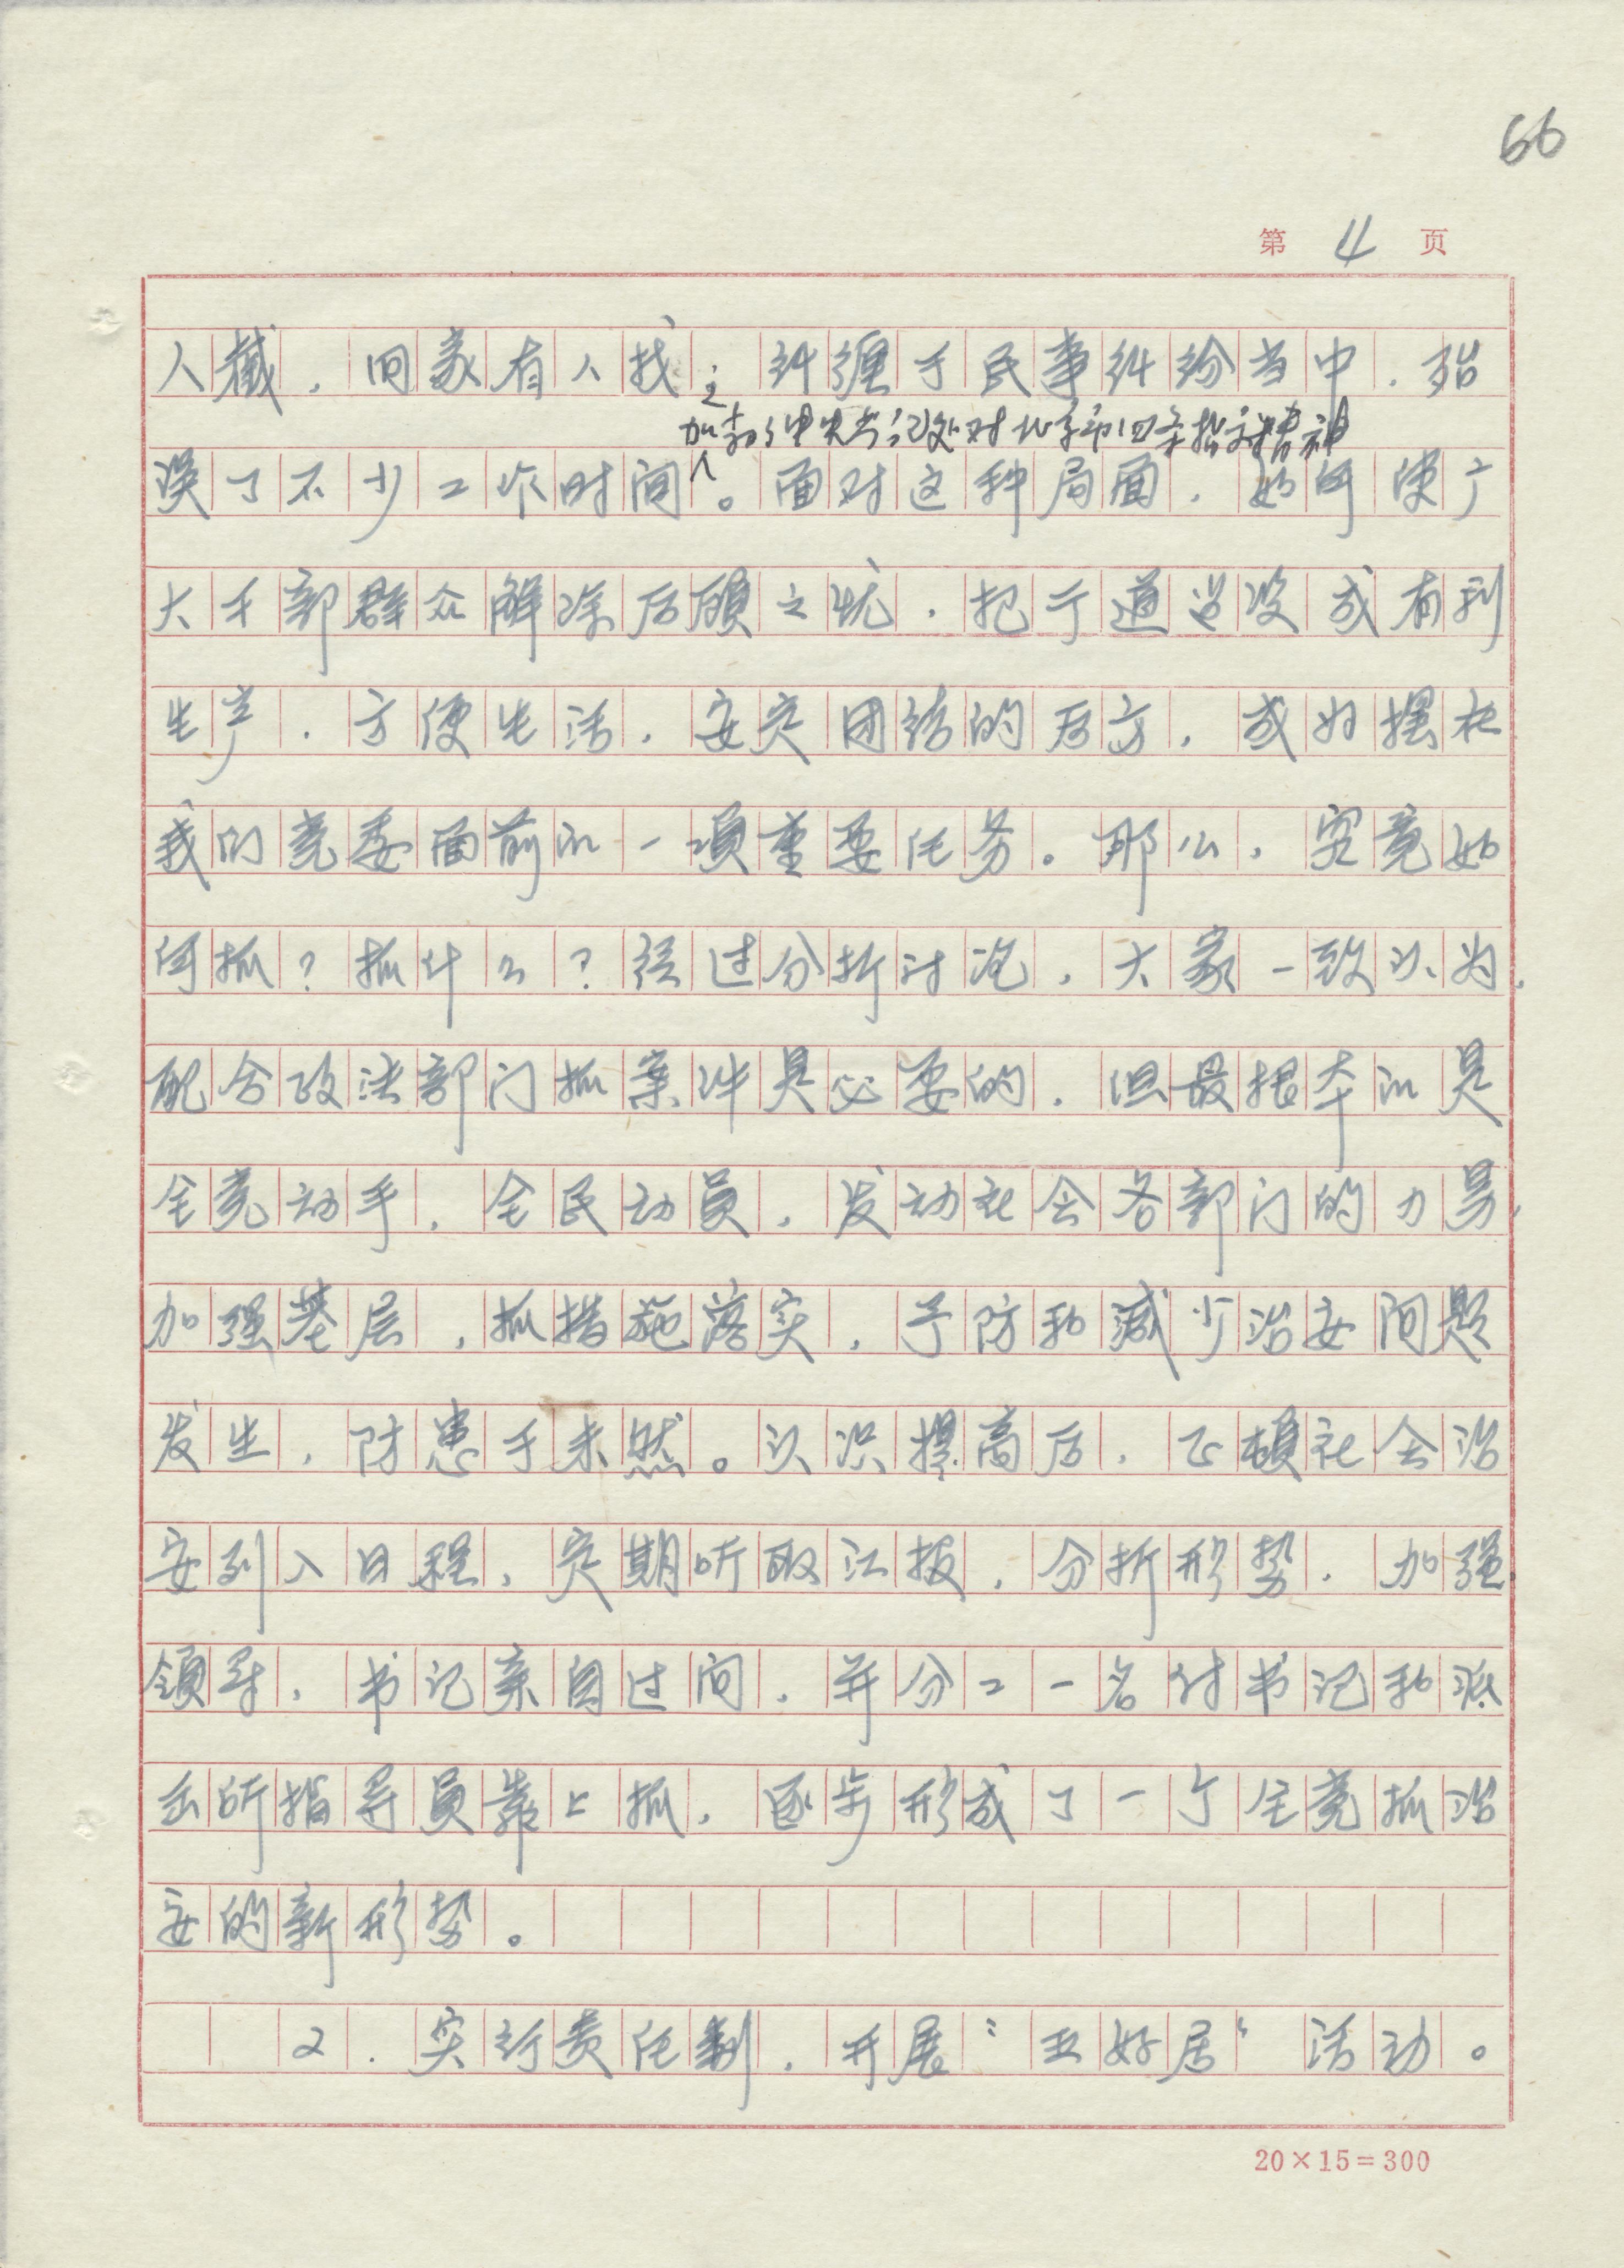 66
第 4 页
人截，回家有人找；纠缠于民事纠纷当中，殆
加 了中央书记处对北京市四条指示精神
误了不少工作时间。面对这种局面，如何使广
大干部群众解除后顾之忧，把厅道建设成有利
生产，方便生活，安定团结的后方，成为摆在
我们党委面前的一项重要任务。那么，究竟如
何抓？抓什么？经过分析讨论，大家一致认为，
配合政法部门抓案件是必要的，但最根本的是
全党动手，全民动员，发动社会各部门的力量，
加强基层，抓措施落实，予防和减少治安问题
发生，防患于未然。认识提高后，正顿社会治
安列入日程，定期听取汇报，分析形势，加强
领导，书记亲自过问，并分工一名付书记和派
出所指导员靠上抓，逐步形成了一个全党抓治
安的新形势。
2．实行责任制，开展“五好居”活动。
20×15=300